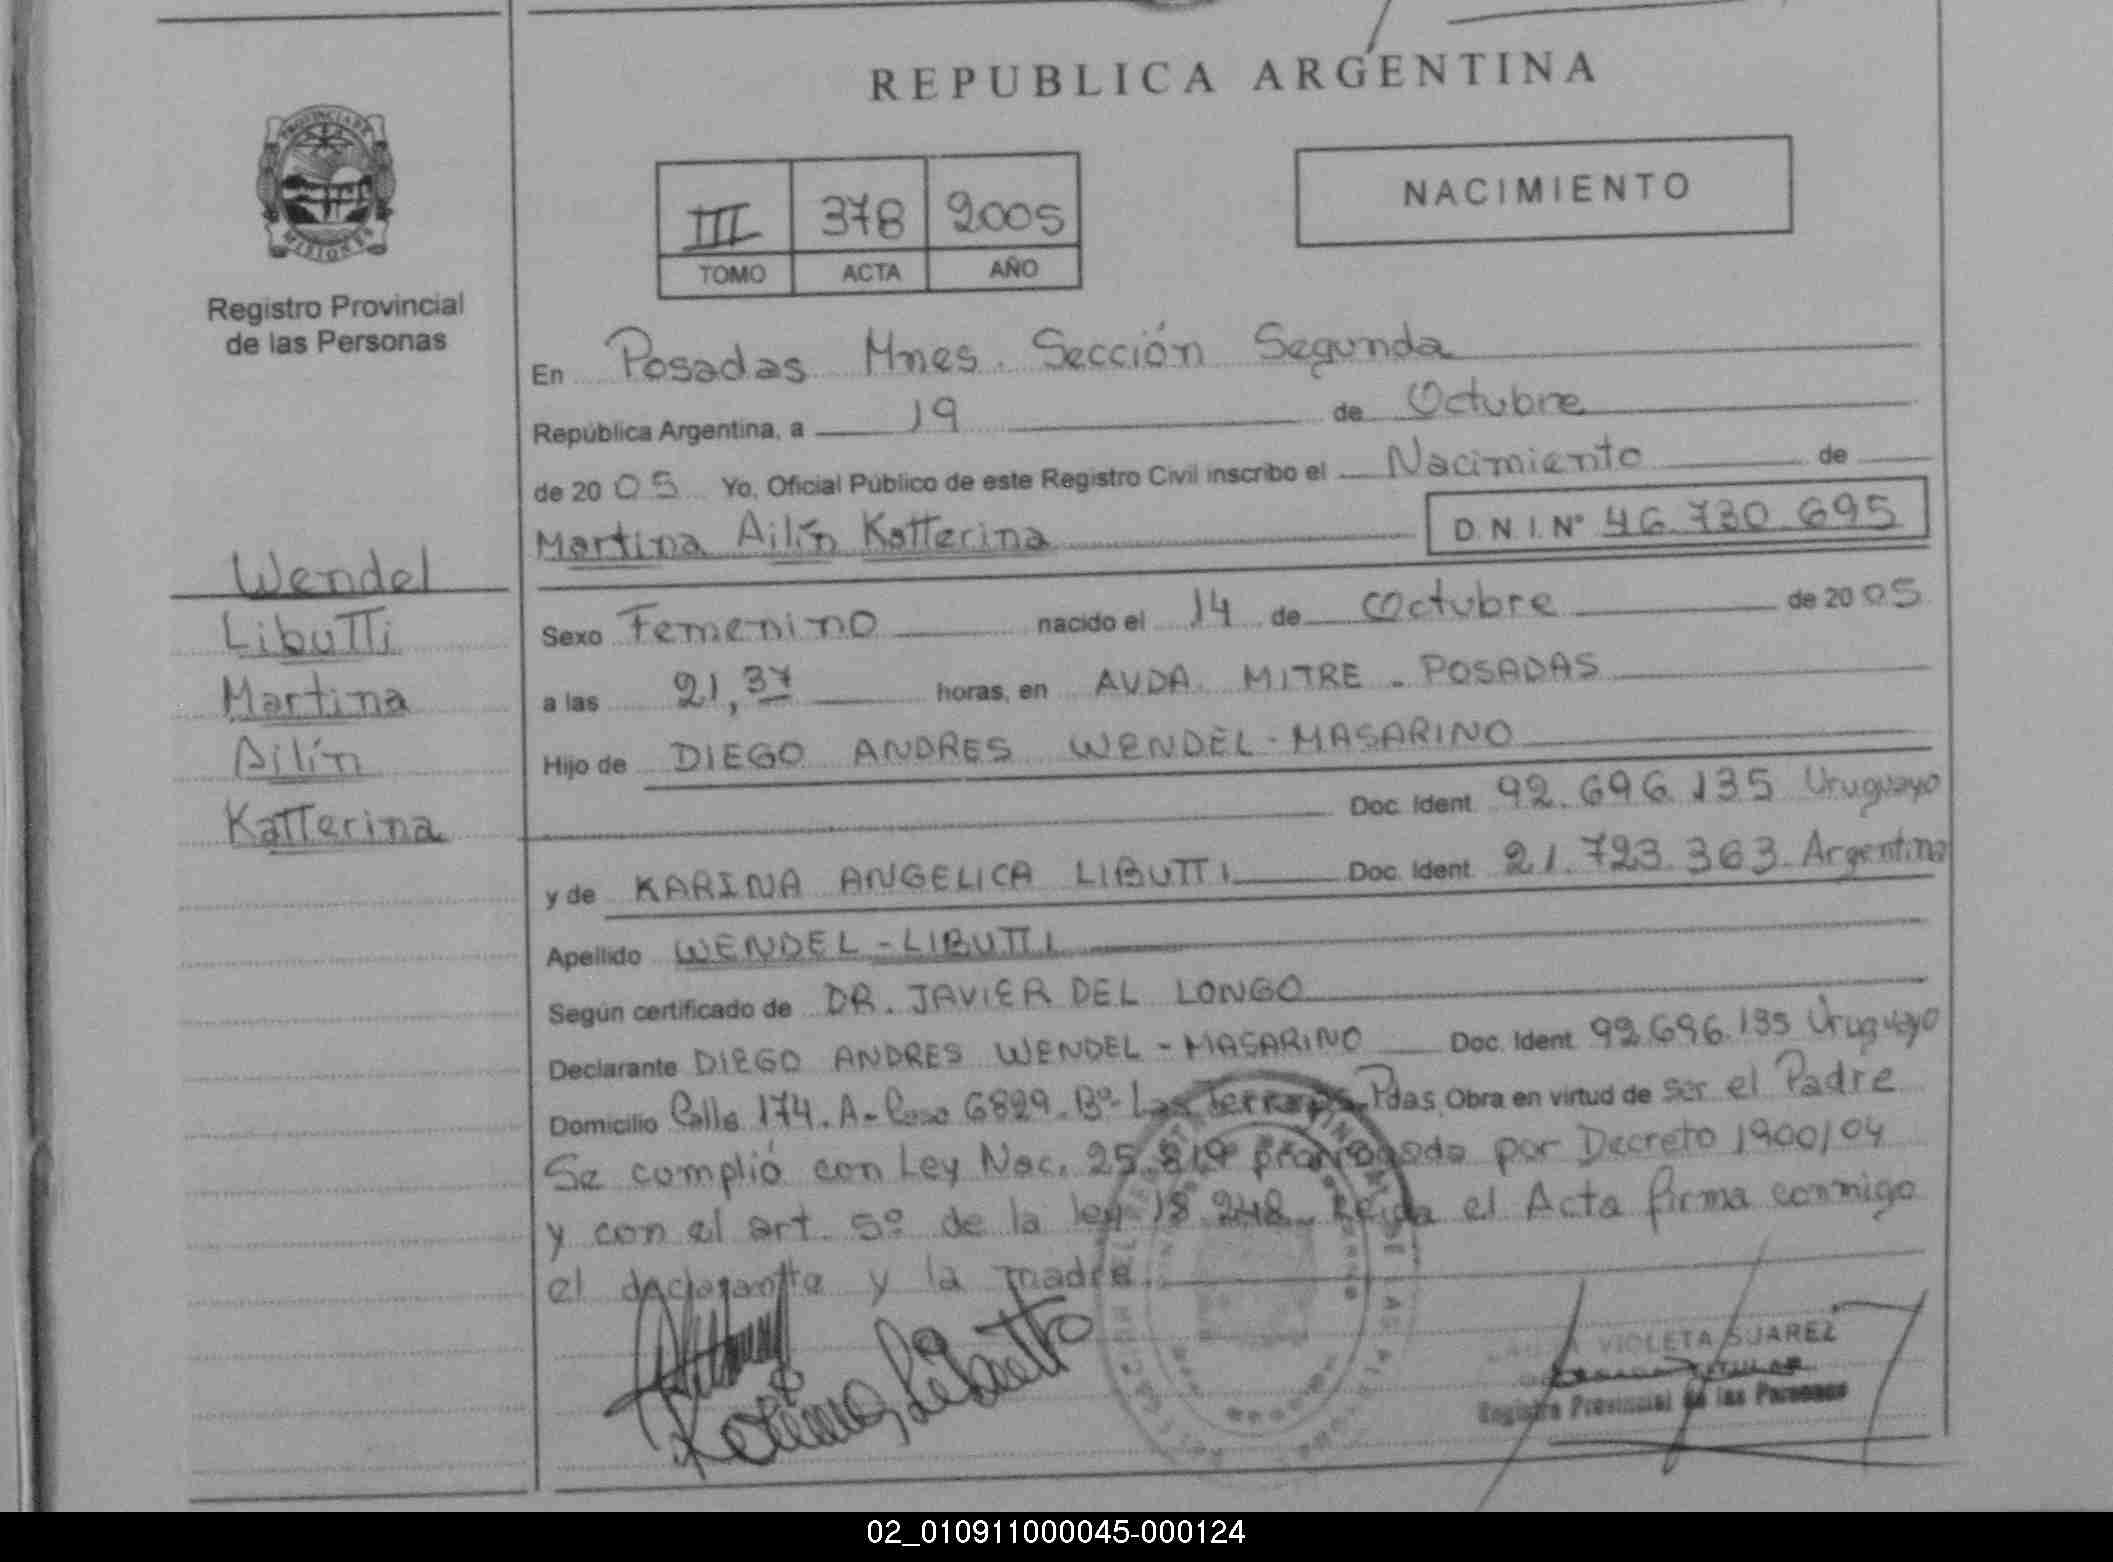 REPUBLICA ARGENTINA
PROVINCIA DE MISIONES
Registro Provincial
de las Personas
NACIMIENTO
III 378 2005
TOMO ACTA AÑO
En Posadas Mnes. Sección Segunda
República Argentina, a 19 de Octubre
de 2005 Yo, Oficial Público de este Registro Civil inscribo el Nacimiento de
Martina Ailín Katterina D.N.I. N° 46.730.695
Wendel
Libutti
Martina
Ailín
Katterina
Sexo Femenino nacido el 14 de Octubre de 2005
a las 21,37 horas, en AVDA. MITRE - POSADAS
Hijo de DIEGO ANDRES WENDEL - MASARINO
Doc. Ident. 92.696.135 Uruguayo
y de KARINA ANGELICA LIBUTTI Doc. Ident. 21.723.363 Argentina
Apellido WENDEL - LIBUTTI
Según certificado de DR. JAVIER DEL LONGO
Declarante DIEGO ANDRES WENDEL - MASARINO Doc. Ident. 92.696.135 Uruguayo
Domicilio Calle 174. A- Casa 6829. B°- Las Terrazas Pdas. Obra en virtud de ser el Padre
Se complió con Ley Nac. 25.819 prorrogada por Decreto 1900/04
y con el art. 5º de la ley 18.248. Leida el Acta firma conmigo
el declarante y la madre.
Karina Libutti
VIOLETA SUAREZ
TITULAR
Registro Provincial de las Personas
02_010911000045-000124